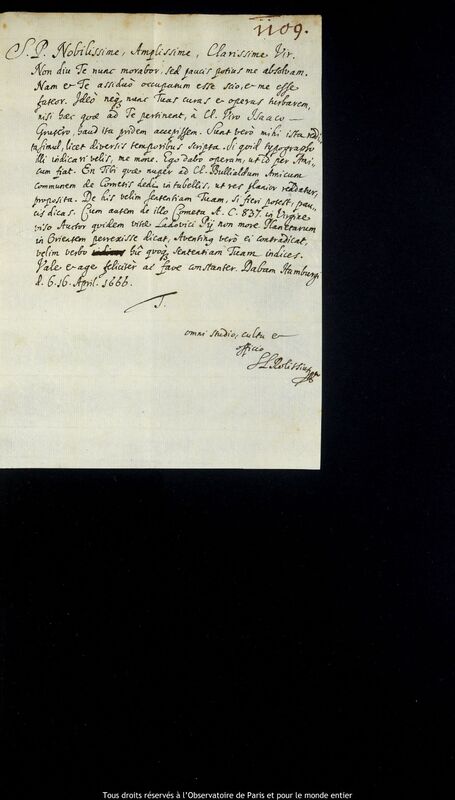 1109.
S. P. Nobilissime, Amplissime, Clarissime Vir.
Non diu Te nunc morabor, sed paucis potius me absolvam.
Nam & Te assiduo occupatum esse scio, & me esse
fateor. Ideo neq; nunc Tuas curas & operas turbarem,
nisi haec quae ad Te pertinent, à Cl. Viro Isaaco
haud ita pridem accepissem. Sunt vero mihi ista
simul, licet diversis temporibus scripta. Si quid typographo
illi indicari velis, me mone. Ego dabo operam, ut id per Ami,
cum fiat. En Tibi quae nuper ad Cl. Bullialdum Amicum
communem de Cometis dedi, in tabellis, ut res planior reddatur,
proposita. De his velim sententiam Tuam, si fieri potest, pau,
cis dicas. Cum autem de illo Cometa A. C. 837. in Virgine
viso Auctor quidem vitae Ludovici Pij non more Planetarum
in Orientem perrexisse dicat, Aventing vero ei contradicat,
velim verbo hic quoq; sententiam Tuam indices.
Vale & age feliciter ac fave constanter. Dabam Hamburgi
d. 6.16. April. 1666.
T.
omni studio, cultu &
officio